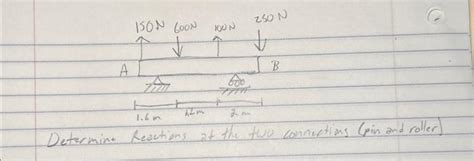 150N 600N 100N 250 N
A B
1.6 m 2 m
Determine Reactions at the two connections (pin and roller)